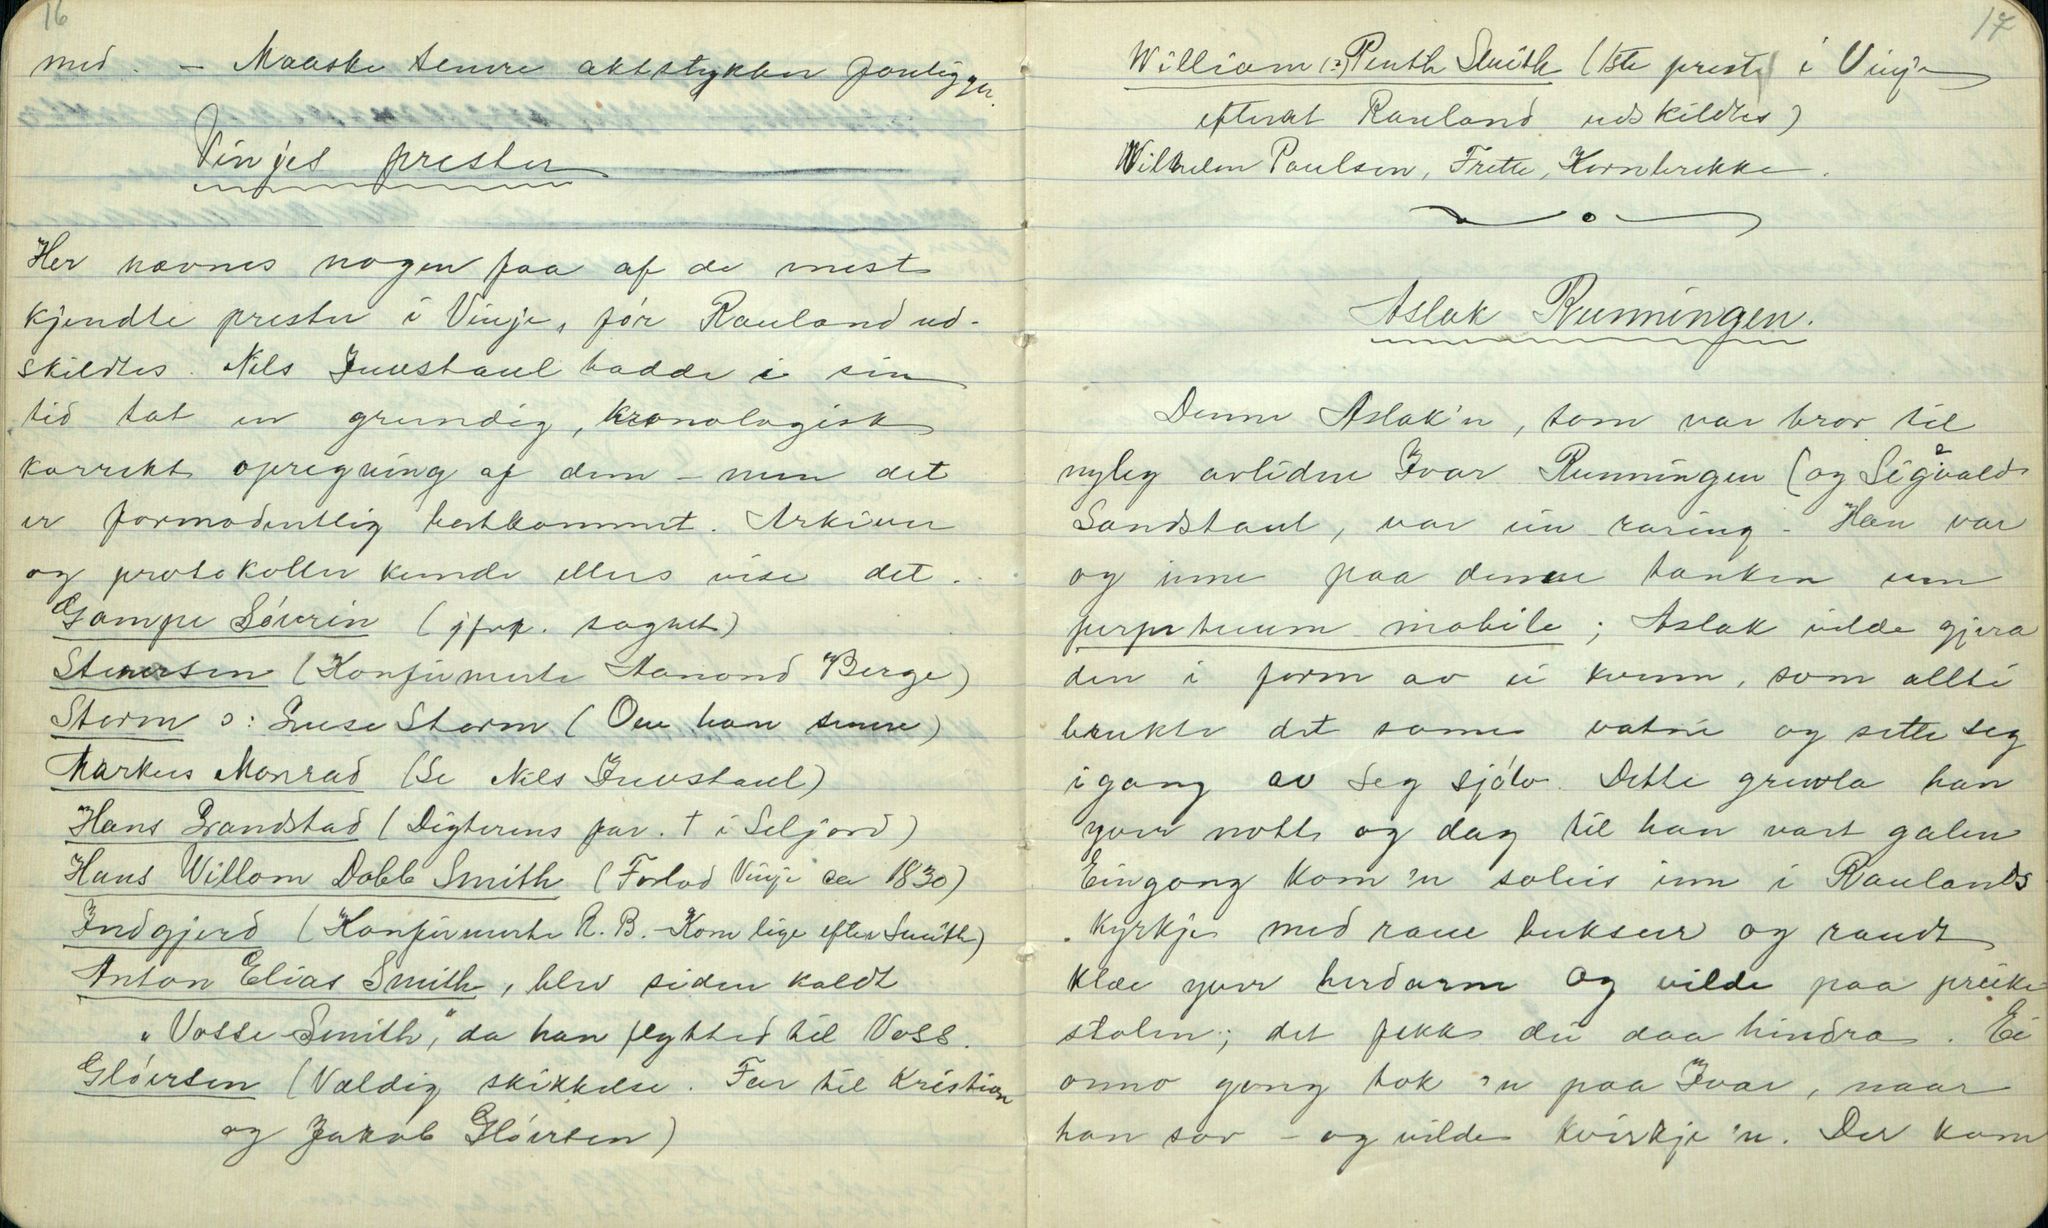 16
med. – Maaske senere aktstykker foreligger.
Vinjes prester
Her nævnes nogen faa af de mest
kjendte prester i Vinje, før Rauland ud-
skildtes. Nils Juvstaul hadde i sin
tid tat en grundig, kronologisk
korrekt opregning af dem – men det
er formodentlig bortkommet. Arkiver
og protokoller kunde ellers vise det.
Gampe Søvrin (jfr. sagnet)
Stenersen (Konfirmerte Aanond Berge)
Storm ɔ: Luse Storm (Om han senere)
Markus Monrad (Se Nils Juvstaul)
Hans Landstad (Digterens far. † i Seljord)
Hans Willom Dobb Smith (Forlod Vinje ca 1830)
Indgjerd (Konfirmerte R. B. – Kom lige efter Smith)
Anton Elias Smith, blev siden kaldt
"Vosse-Smith," da han flytted til Voss.
Gløersen (Vældig skikkelse. Far til Kristian
og Jakob Gløersen)
17
William (?) Smith (1ste prest i Vinje
efterat Rauland udskildtes)
Wilhelm Paulsen, Frette, Kornbrekke.
Aslak Runningen.
Denne Aslak'n, som var bror til
nyleg avlidne Ivar Runningen (og Sigvald
Sandstaul, var ein raring – Han var
og inne paa denne tanken um
perpetuum mobile; Aslak vilde gjera
den i form av ei kvenn, som allti
brukte det same vatne og sette seg
igang av seg sjølv. Dette gruvla han
yver nott og dag til han vart galen
Eingong kom 'n soleis inn i Raulands
kyrkje med raue buksur og raudt
klæ yver herdarne og vilde paa preike
stolen; det fekk dei daa hindra. Ei
onno gong tok 'n paa Ivar, naar
han sov – og vilde kvirkje 'n. Der kom